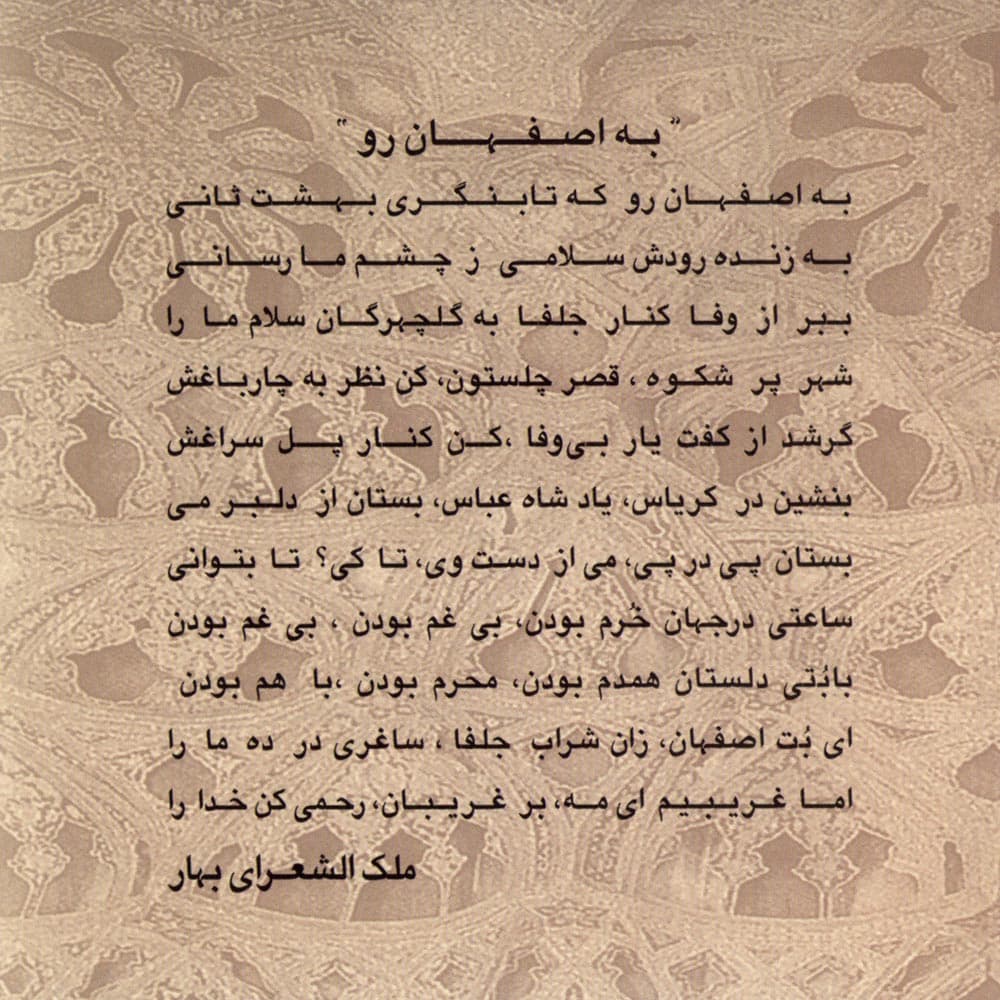 " به اصفهان رو "
به اصفهان رو که تابنگری بهشت ثانی
به زنده رودش سلامی ز چشم ما رسانی
ببر از وفا کنار جلفا به گلچهرگان سلام ما را
شهر پر شکوه ، قصر چلستون، کن نظر به چارباغش
گرشد از کفت یار بی‌وفا ،کن کنار پل سراغش
بنشین در کریاس، یاد شاه عباس، بستان از دلبر می
بستان پی در پی، می از دست وی، تا کی؟ تا بتوانی
ساعتی درجهان خُرم بودن، بی غم بودن ، بی غم بودن
بابُتی دلستان همدم بودن، محرم بودن ،با هم بودن
ای بُت اصفهان، زان شراب جلفا ، ساغری در ده ما را
اما غریبیم ای مه، بر غریبان، رحمی کن خدا را
ملک الشعرای بهار